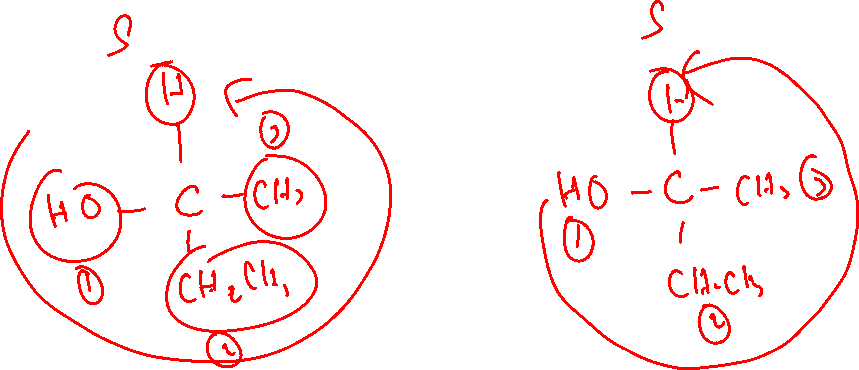 S
H
3
HO - C - CH3
1
CH2CH3
2
S
H
HO - C - CH3 3
1
CH2CH3
2